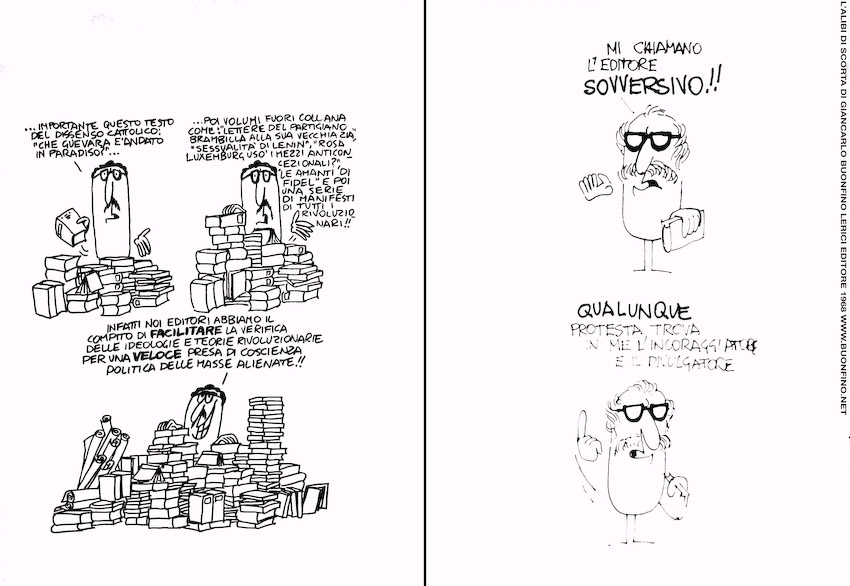 ...IMPORTANTE QUESTO TESTO
DEL DISSENSO CATTOLICO:
"CHE GUEVARA E' ANDATO
IN PARADISO?"...
...POI VOLUMI FUORI COLLANA
COME: "LETTERE DEL PARTIGIANO
BRAMBILLA ALLA SUA VECCHIA ZIA,
"SESSUALITÀ DI LENIN", "ROSA
LUXEMBURG USO' I MEZZI ANTICON
CEZIONALI?"
"LE AMANTI DI
FIDEL" E POI
UNA SERIE
DI MANIFESTI
DI TUTTI I
RIVOLUZIO
NARI!!
INFATTI NOI EDITORI ABBIAMO IL
COMPITO DI FACILITARE LA VERIFICA
DELLE IDEOLOGIE E TEORIE RIVOLUZIONARIE
PER UNA VELOCE PRESA DI COSCIENZA
POLITICA DELLE MASSE ALIENATE!!
MI CHIAMANO
L'EDITORE
SOVVERSIVO!!
QUALUNQUE
PROTESTA TROVA
IN ME L'INCORAGGIATORE
E IL DIVULGATORE
L'ALIBI DI SCORTA DI GIANCARLO BUONFINO LERICI EDITORE 1968 WWW.BUONFINO.NET